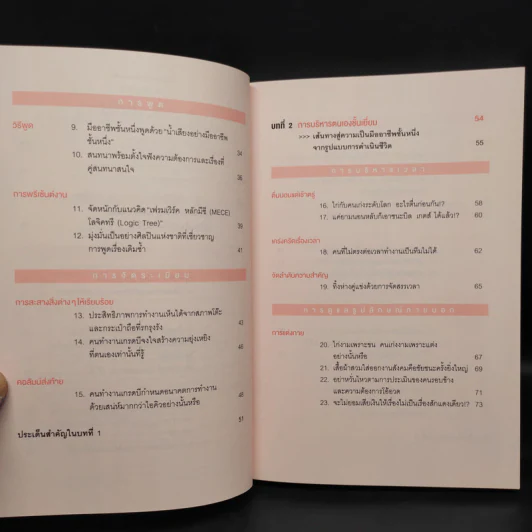 การพูด
วิธีพูด
9. มืออาชีพชั้นหนึ่งพูดด้วย "น้ำเสียงอย่างมืออาชีพ
ชั้นหนึ่ง" 34
10. สนทนาพร้อมตั้งใจฟังความต้องการและเรื่องที่
คู่สนทนาสนใจ 36
การพรีเซ้นต์งาน
11. จัดหนักกับแนวคิด "เฟรมเวิร์ค หลักมีซี (MECE)
โลจิคทรี (Logic Tree)" 39
12. มุ่งมั่นเป็นอย่างศิลปินแห่งชาติที่เชี่ยวชาญ
การพูดเรื่องเดิมซ้ำ 41
การจัดระเบียบ
การสะสางสิ่งต่างๆ ให้เรียบร้อย
13. ประสิทธิภาพการทำงานเห็นได้จากสภาพโต๊ะ
และกระเป๋าถือที่รกรุงรัง 43
14. คนทำงานเกรดบีจงใจสร้างความยุ่งเหยิง
ที่ตนเองเท่านั้นที่รู้ 46
คอลัมน์ส่งท้าย
15. คนทำงานเกรดบีกำหนดอนาคตการทำงาน
ด้วยเสน่ห์มากกว่าไอคิวอย่างนั้นหรือ
ประเด็นสำคัญในบทที่ 1 51
บทที่ 2 การบริหารตนเองชั้นเยี่ยม 54
>>> เส้นทางสู่ความเป็นมืออาชีพชั้นหนึ่ง
จากรูปแบบการดำเนินชีวิต 55
การบริหารเวลา
ตื่นนอนแต่เช้าตรู่
16. ไก่กับคนเก่งระดับโลก อะไรตื่นก่อนกัน!? 58
17. แค่ยามนอนหลับก็เอาชนะบิล เกตส์ ได้แล้ว!? 60
เคร่งครัดเรื่องเวลา
18. คนที่ไม่ตรงต่อเวลาทำงานเป็นทีมไม่ได้ 62
จัดลำดับความสำคัญ
19. ทิ้งห่างคู่แข่งด้วยการจัดสรรเวลา 65
การดูแลรูปลักษณ์ภายนอก
การแต่งกาย
20. ไก่งามเพราะขน คนเก่งงามเพราะแต่ง
อย่างนั้นหรือ 67
21. เสื้อผ้าสวมใส่ออกงานสังคมคือชัยชนะครั้งยิ่งใหญ่ 69
22. อย่าหวั่นไหวตามการประเมินของคนรอบข้าง
และความต้องการใช้อวด 71
23. จะไม่ยอมเสียเงินให้เรื่องไม่เป็นเรื่องสักแดงเดียว!? 73